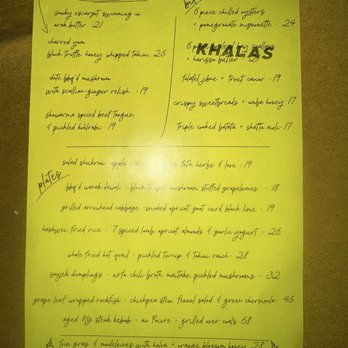 smoky escargot swimming in
arak butter 21
charred yam
black truffle honey whipped tahini 25
date bbq'd mushroom
with scallion-ginger relish - 19
shawarma spiced beef tongue
& pickled kohlrabi 19
6 piece chilled oysters
+ pomegranate mignonette - 24
6
+ harissa butter
KHALAS
falafel jibne + trout caviar - 19
crispy sweetbreads + amba honey 17
triple cooked batata + shatta aioli - 17
plates
salad shukran apple feta herbs & love - 19
bbq'd warak dawali - black mushroom stuffed grapeleaves - 18
grilled arrowhead cabbage - smoked apricot goat curd black lime - 19
hashwei fried rice - 7 spiced lamb, apricot, almonds & garlic yogurt - 26
whole fried hot quail - pickled turnip & tahini ranch - 28
soujek dumplings - urfa chili broth, maitake, pickled mushrooms - 32
grape leaf wrapped rockfish - chickpea stew, fennel salad & green chermoula - 46
aged NY steak kebab - au Poivre - grilled over coals 68
foie gras & madeleines with halva + orange blossom honey 28